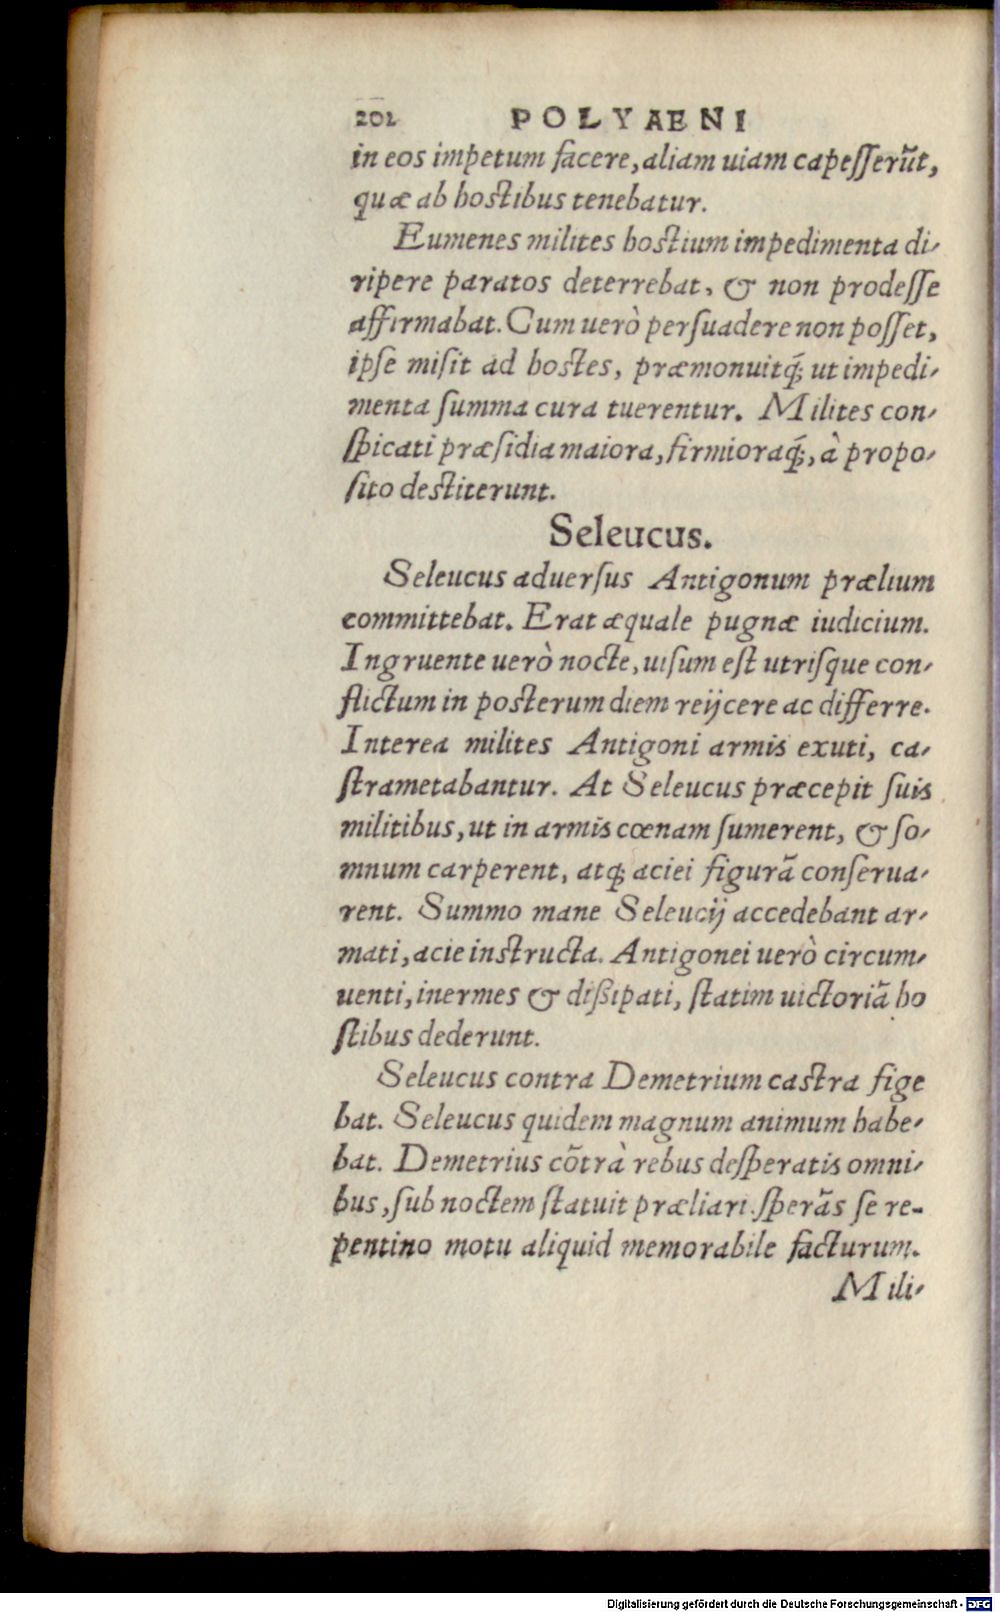 202 POLYAENI
in eos impetum facere, aliam uiam capesserũt,
quæ ab hostibus tenebatur.
Eumenes milites hostium impedimenta di-
ripere paratos deterrebat, & non prodesse
affirmabat. Cum uerò persuadere non posset,
ipse misit ad hostes, præmonuitq́; ut impedi-
menta summa cura tuerentur. Milites con-
spicati præsidia maiora, firmioraq́;, à propo-
sito destiterunt.
Seleucus.
Seleucus aduersus Antigonum prælium
committebat. Erat æquale pugnæ iudicium.
Ingruente uerò nocte, uisum est utrisque con-
flictum in posterum diem reijcere ac differre.
Interea milites Antigoni armis exuti, ca-
strametabantur. At Seleucus præcepit suis
militibus, ut in armis cœnam sumerent, & so-
mnum carperent, atq; aciei figurã conserua-
rent. Summo mane Seleucij accedebant ar-
mati, acie instructa. Antigonei uerò circum-
uenti, inermes & dißipati, statim uictoriã ho
stibus dederunt.
Seleucus contra Demetrium castra fige
bat. Seleucus quidem magnum animum habe-
bat. Demetrius cõtrà rebus desperatis omni-
bus, sub noctem statuit præliari. sperãs se re-
pentino motu aliquid memorabile facturum.
Mili-
Digitalisierung gefördert durch die Deutsche Forschungsgemeinschaft - DFG